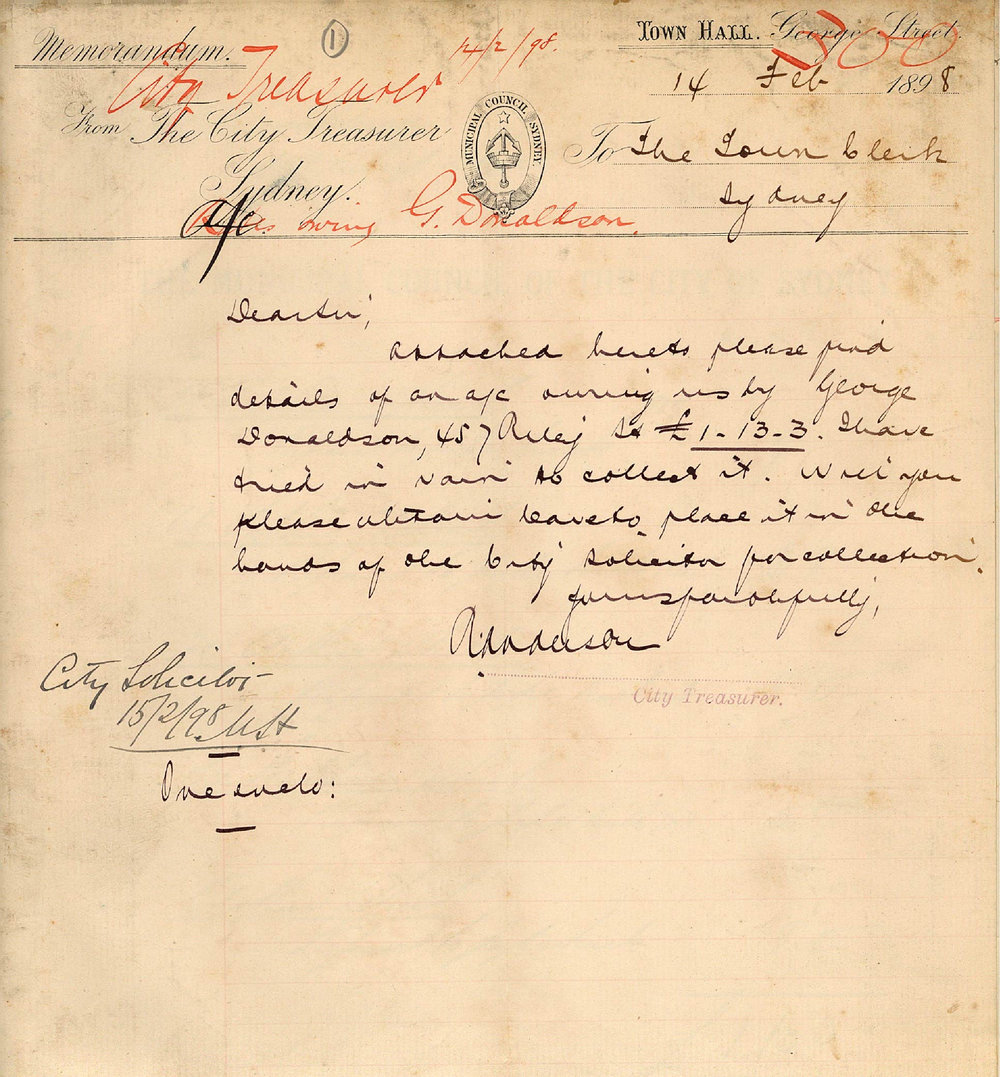 Memorandum.
1
Town Hall. George Street
500
City Treasurer
14/2/98.
14 Feb 1898
From The City Treasurer
Sydney.
MUNICIPAL COUNCIL SYDNEY.
To The Town Clerk
Sydney
a/c
owing G. Donaldson.
Dear Sir,
Attached hereto please find
details of an a/c owing us by George
Donaldson, 457 Riley St £1-13-3. I have
tried in vain to collect it. Will you
please obtain leave to place it in the
hands of the City Solicitor for collection.
Yours faithfully,
R. Anderson
City Treasurer.
City Solicitor
15/2/98.
One enclo: